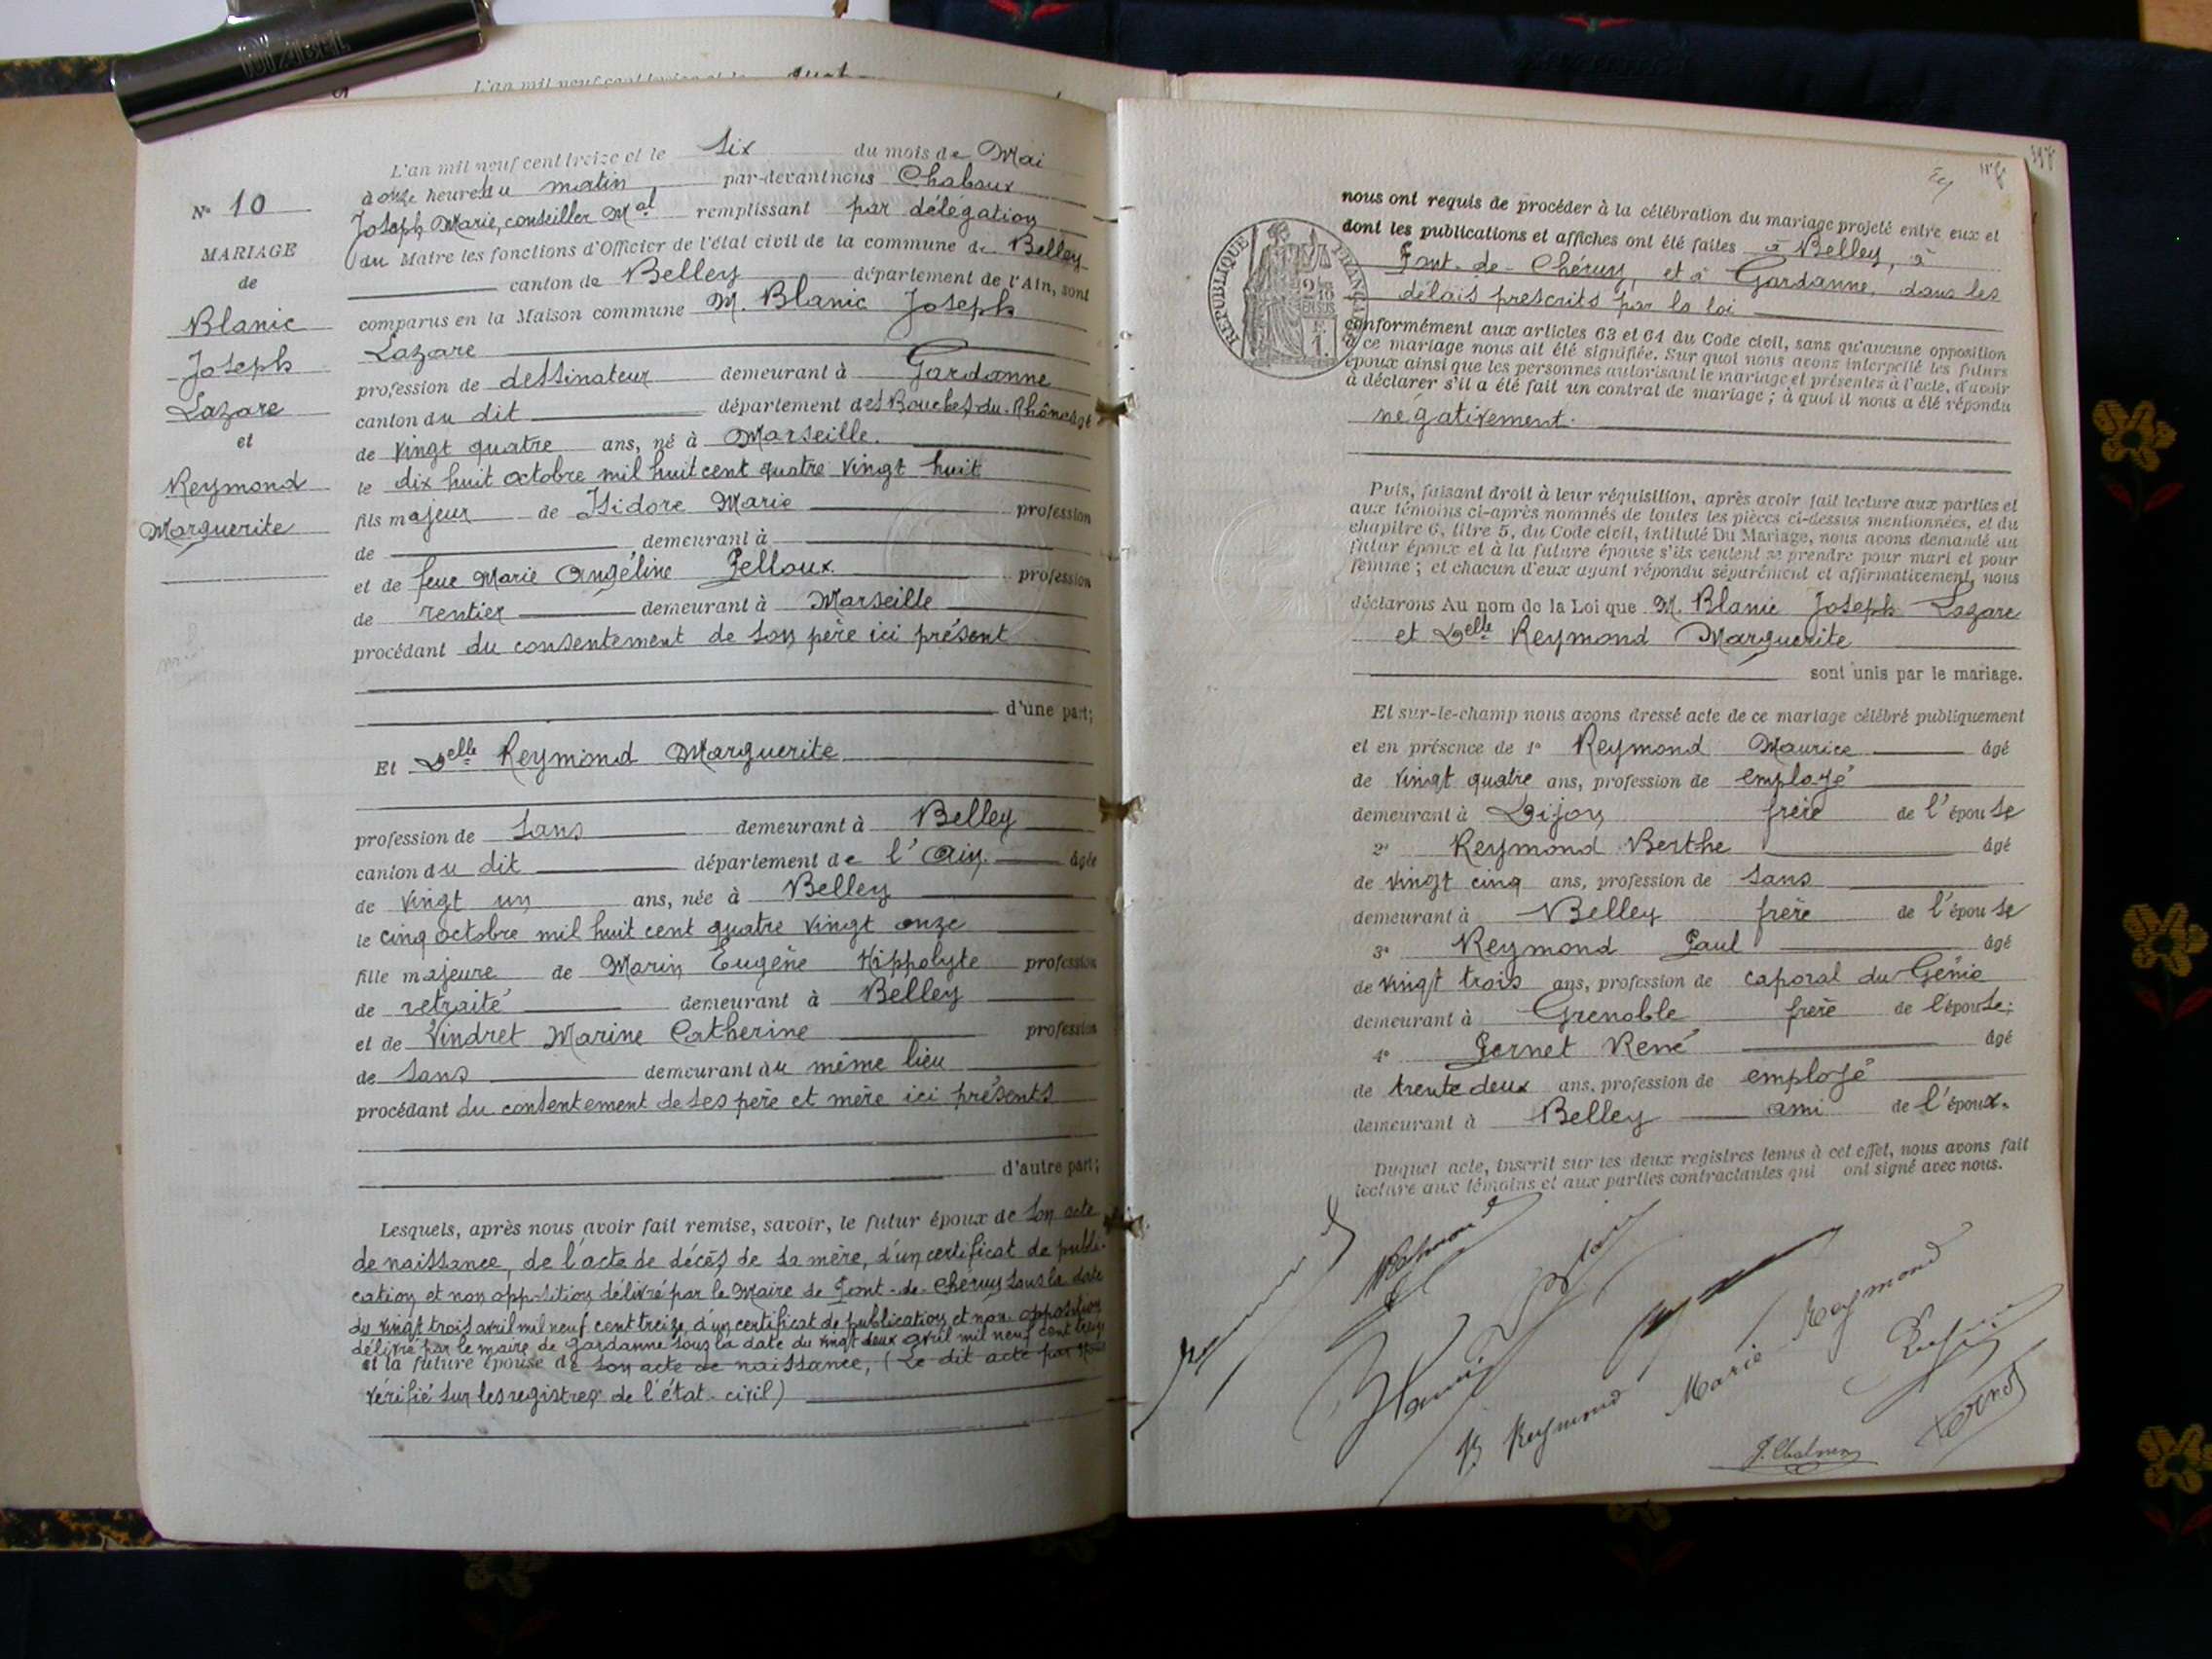 L'an mil neuf cent treize et le
N° 10
MARIAGE
de
Blanic
Joseph
Lazare
et
Reymond
Marguerite
L'an mil neuf cent treize et le six du mois de Mai
à onze heures du matin par-devant nous Chaboux
Joseph Marie, conseiller Mal remplissant par délégation
du Maire les fonctions d'Officier de l'état civil de la commune de Belley
canton de Belley département de l'Ain, sont
comparus en la Maison commune M. Blanic Joseph
Lazare
profession de dessinateur demeurant à Gardanne
canton du dit département des Bouches-du-Rhône âgé
de vingt quatre ans, né à Marseille.
le dix huit octobre mil huit cent quatre vingt huit
fils majeur de Isidore Marie profession
de demeurant à
et de feue Marie Angéline Pelloux profession
de rentier demeurant à Marseille
procédant du consentement de son père ici présent
d'une part;
Et Delle Reymond Marguerite
profession de sans demeurant à Belley
canton du dit département de l'Ain. âgée
de vingt un ans, née à Belley
le cinq octobre mil huit cent quatre vingt onze
fille majeure de Marin Eugène Hippolyte profession
de retraité demeurant à Belley
et de Vindret Marine Catherine profession
de sans demeurant au même lieu
procédant du consentement de ses père et mère ici présents
d'autre part;
Lesquels, après nous avoir fait remise, savoir, le futur époux de son acte
de naissance, de l'acte de décès de sa mère, d'un certificat de publi-
cation et non opposition délivré par le Maire de Pont-de-Chéruy sous la date
du vingt trois avril mil neuf cent treize, d'un certificat de publication et non opposition
délivré par le maire de Gardanne sous la date du vingt deux avril mil neuf cent treize
et la future épouse de son acte de naissance, (Le dit acte par nous
vérifié sur les registres de l'état-civil)
nous ont requis de procéder à la célébration du mariage projeté entre eux et
dont les publications et affiches ont été faites à Belley, à
Pont-de-Chéruy, et à Gardanne, dans les
délais prescrits par la loi
REPUBLIQUE FRANÇAISE
conformément aux articles 63 et 64 du Code civil, sans qu'aucune opposition
à ce mariage nous ait été signifiée. Sur quoi nous avons interpellé les futurs
époux ainsi que les personnes autorisant le mariage et présentes à l'acte, d'avoir
à déclarer s'il a été fait un contrat de mariage ; à quoi il nous a été répondu
négativement.
Puis, faisant droit à leur réquisition, après avoir fait lecture aux parties et
aux témoins ci-après nommés de toutes les pièces ci-dessus mentionnées, et du
chapitre 6, titre 5, du Code civil, intitulé Du Mariage, nous avons demandé au
futur époux et à la future épouse s'ils veulent se prendre pour mari et pour
femme ; et chacun d'eux ayant répondu séparément et affirmativement, nous
déclarons Au nom de la Loi que M. Blanic Joseph Lazare
et Delle Reymond Marguerite
sont unis par le mariage.
Et sur-le-champ nous avons dressé acte de ce mariage célébré publiquement
et en présence de 1° Reymond Maurice âgé
de vingt quatre ans, profession de employé
demeurant à Dijon frère de l'épouse
2° Reymond Berthe âgé
de vingt cinq ans, profession de sans
demeurant à Belley frère de l'épouse
3° Reymond Paul âgé
de vingt trois ans, profession de caporal du Génie
demeurant à Grenoble frère de l'épouse;
4° Pernet René âgé
de trente deux ans, profession de employé
demeurant à Belley ami de l'époux.
Duquel acte, inscrit sur les deux registres tenus à cet effet, nous avons fait
lecture aux témoins et aux parties contractantes qui ont signé avec nous.
B Reymond
Marie Reymond